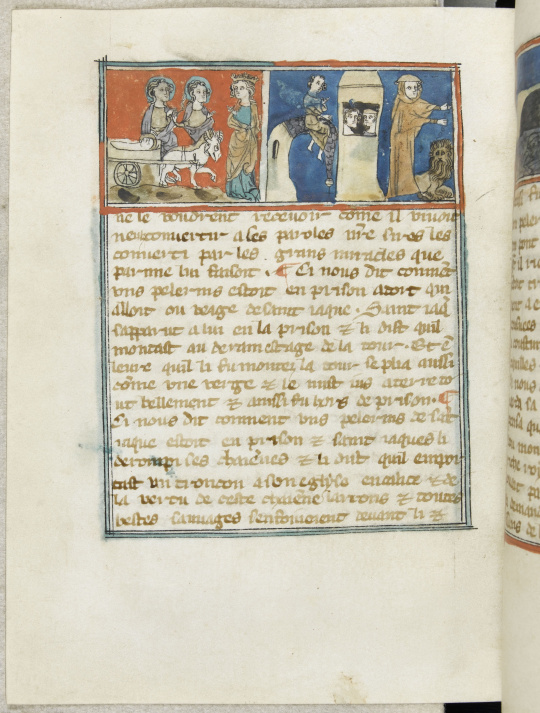 ne le voudrent recevoir come il vivoit
neuconvertir a ses paroles nre sires les
converti par les grans miracles que
par me lui faisoit . ¶ Ci nous dit comēt
uns pelerins estoit en prison a tort qui
alloit ou veage de saint iaque . Saint iaq̄
sapparut a lui en la prison ⁊ li dist quil
montast au derain estage de la tour . Et ē
leure quil li fu montez la tour se plia aussi
cōme une verge ⁊ le mist ius a terre to
ut bellement ⁊ aussi fu hors de prison . ¶
Ci nous dit comment uns pelerins de sāt
iaque estoit en prison ⁊ saint iaques li
derompi ses chaiēnes ⁊ li dist quil empor
tast un troncon a son eglyse en galice ⁊ de
la vertu de ceste chaiēne larrons ⁊ toutes
bestes sauvages senfouioient devant li ⁊